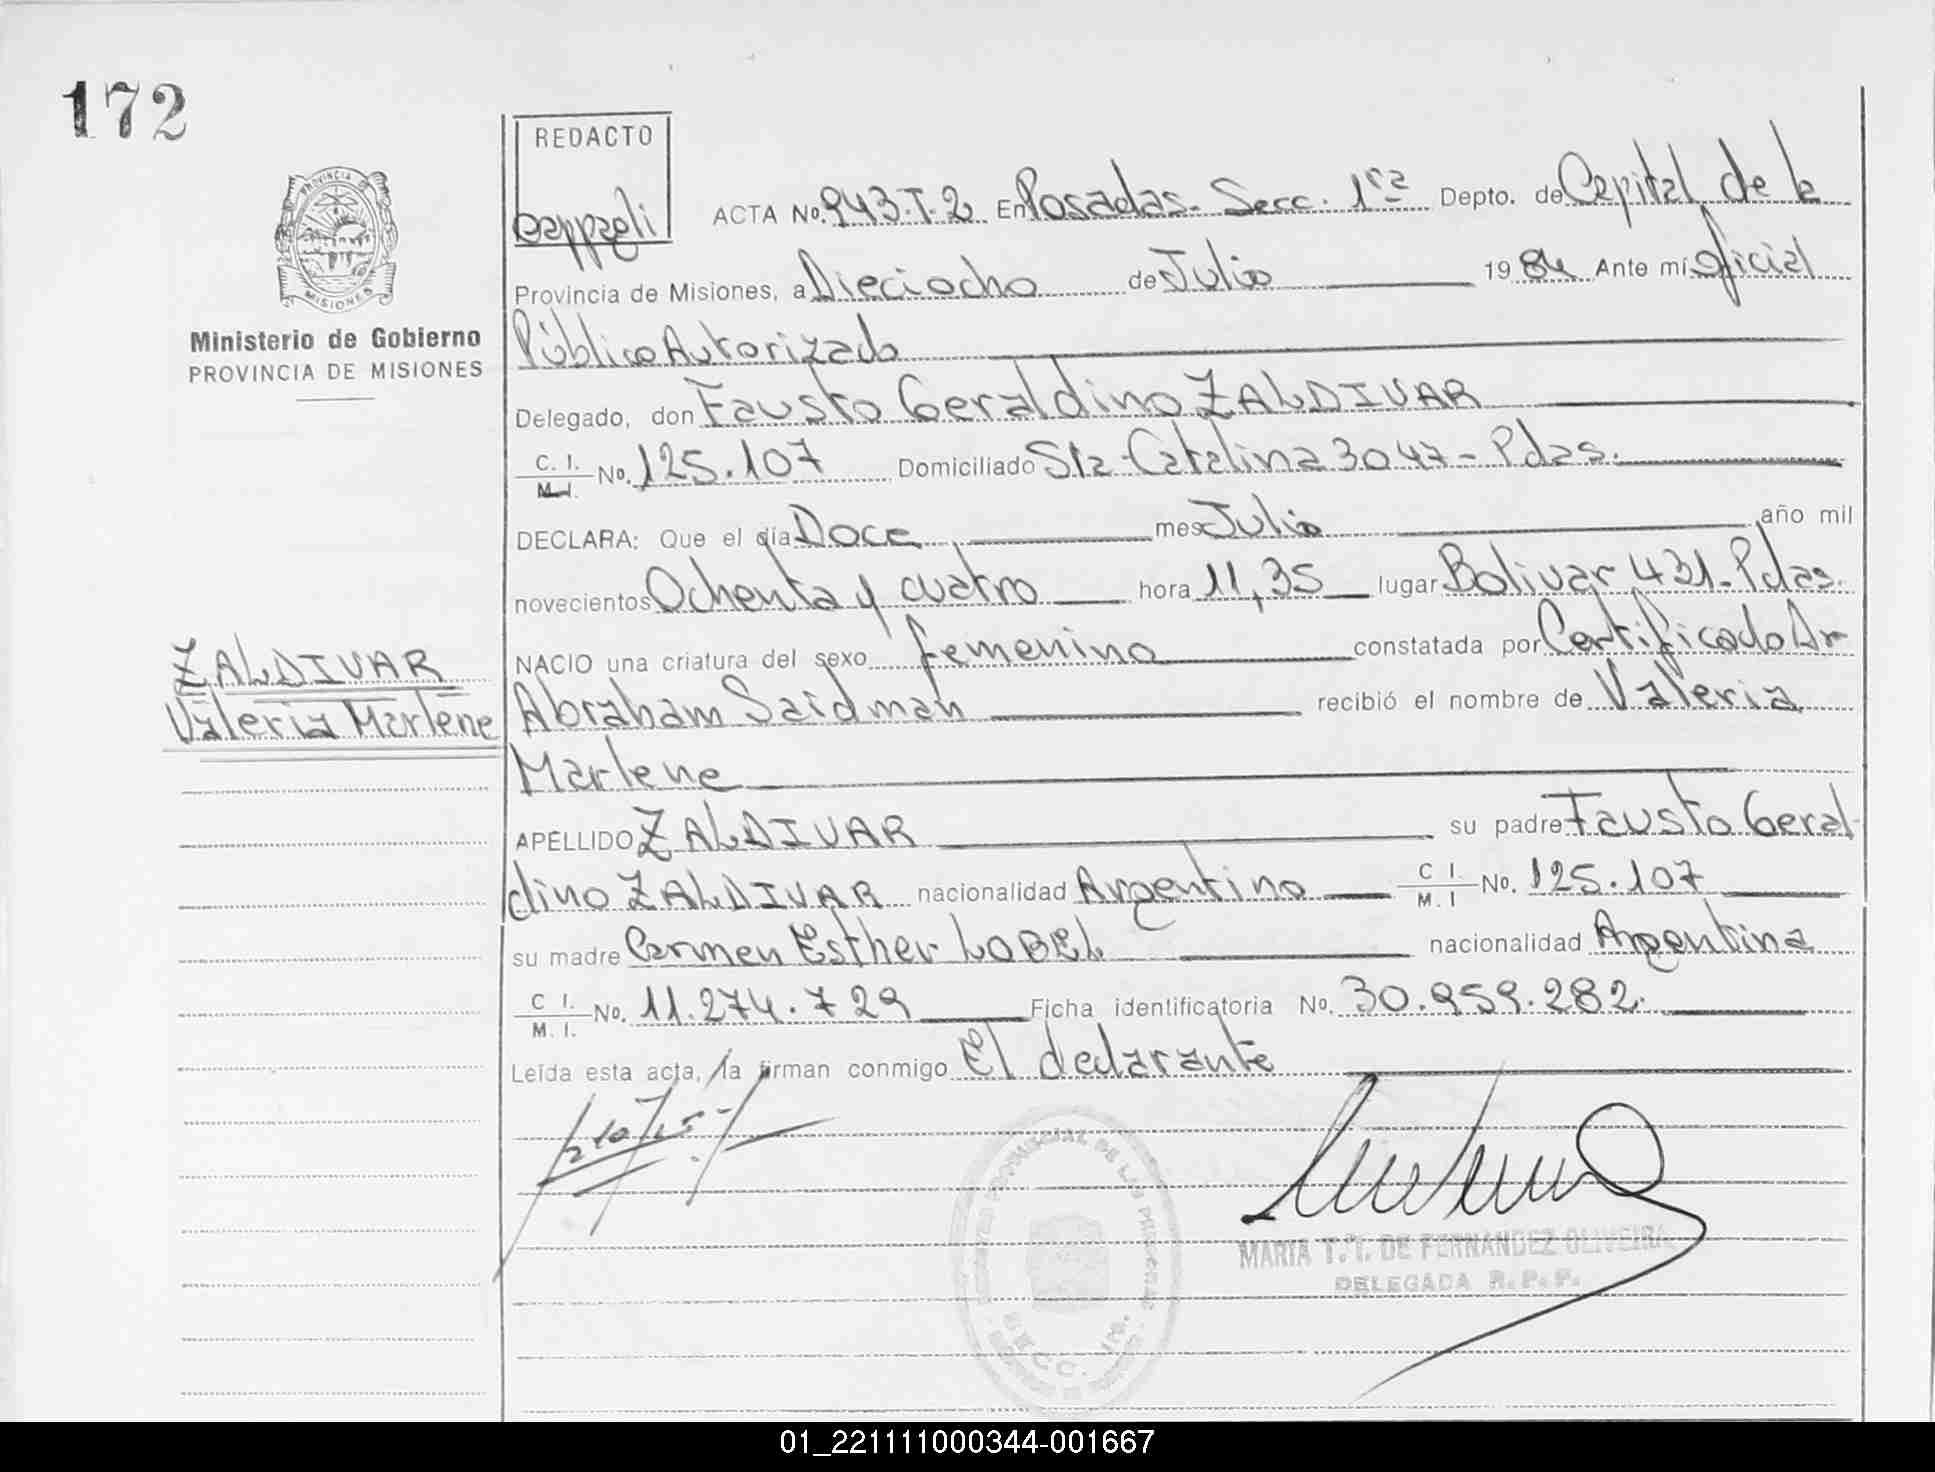 172
REDACTO
ACTA No. 943.T.2 En Posadas. Secc. 1ra Depto. de Capital de la
PROVINCIA
MISIONES
Provincia de Misiones, a Dieciocho de Julio 1984 Ante mí Oficial
Ministerio de Gobierno
PROVINCIA DE MISIONES
Público Autorizado
Delegado, don Fausto Geraldino ZALDIVAR
C. I. M. I. No. 125.107 Domiciliado Sta. Catalina 3047 - Pdas.
DECLARA: Que el día Doce mes Julio año mil
novecientos Ochenta y cuatro hora 11,35 lugar Bolivar 431 - Pdas.
NACIO una criatura del sexo femenino constatada por Certificado Dr
ZALDIVAR
Valeria Marlene
Abraham Saidman recibió el nombre de Valeria
Marlene
APELLIDO ZALDIVAR su padre Fausto Geral
dino ZALDIVAR nacionalidad Argentino C I. M. I No. 125.107
su madre Carmen Esther LOBEL nacionalidad Argentina
C I. M. I. No. 11.274.729 Ficha identificatoria No. 30.959.282.
Leída esta acta, la firman conmigo El declarante
MARIA T. T. DE FERNANDEZ OLIVEIRA
DELEGADA R. P. P.
PROVINCIAL DE LAS PERSONAS
SECC. 1ra.
01_221111000344-001667